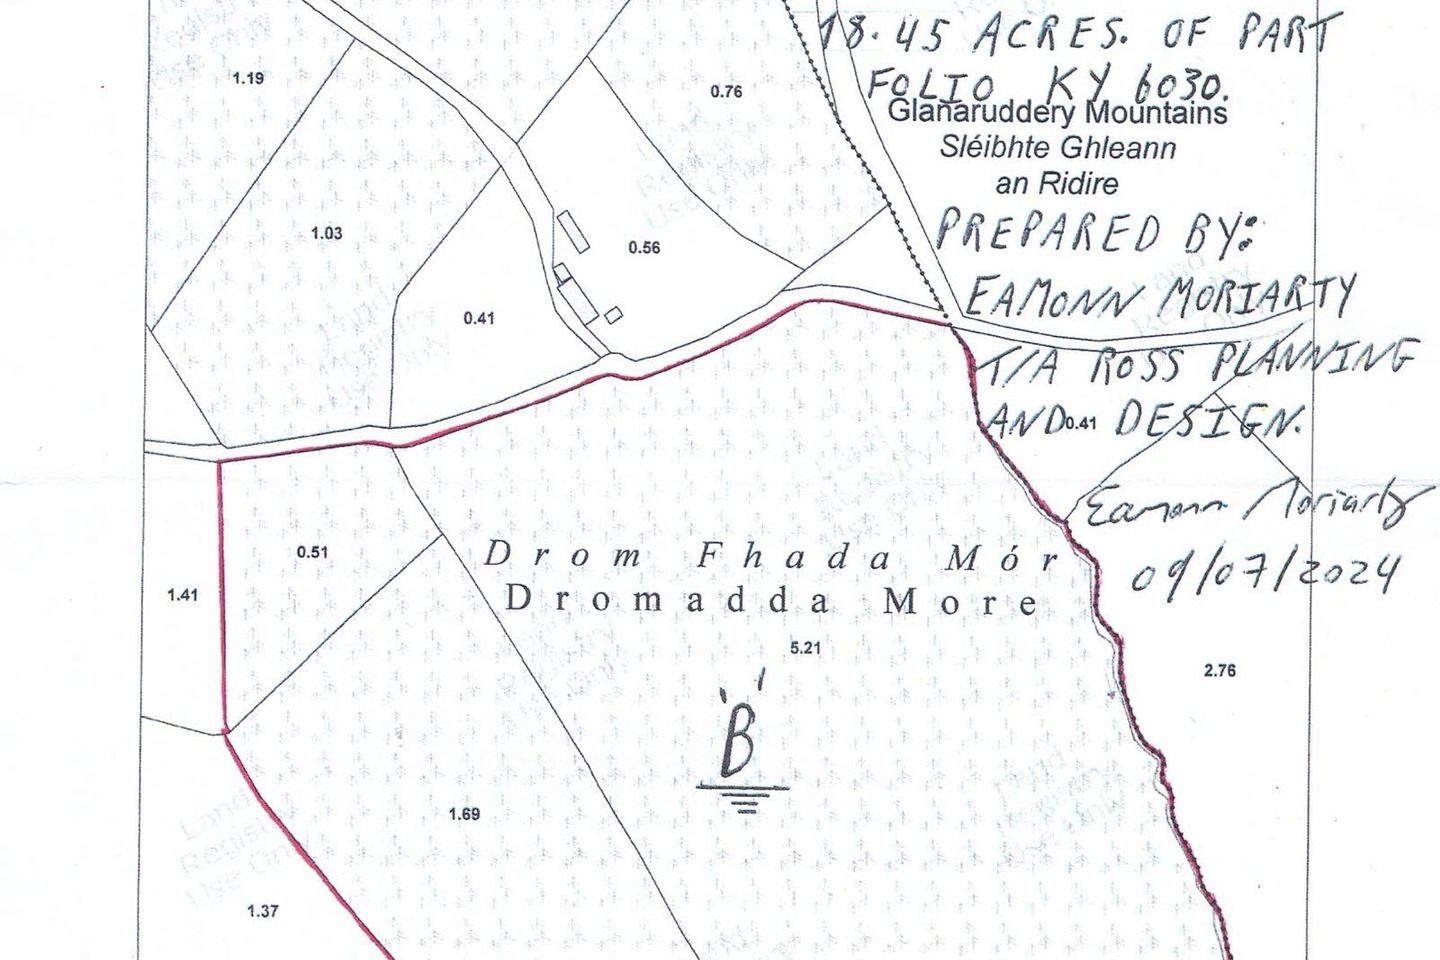 18.45 ACRES. OF PART
FOLIO KY 6030.
Glanaruddery Mountains
Sléibhte Ghleann
an Ridire
PREPARED BY:
EAMONN MORIARTY
T/A ROSS PLANNING
AND DESIGN.
Eamonn Moriarty
09/07/2024
1.19
0.76
1.03
0.56
0.41
0.41
0.51
1.41
Drom Fhada Mór
Dromadda More
5.21
2.76
'B'
1.69
1.37
Land
Registry
Use Only